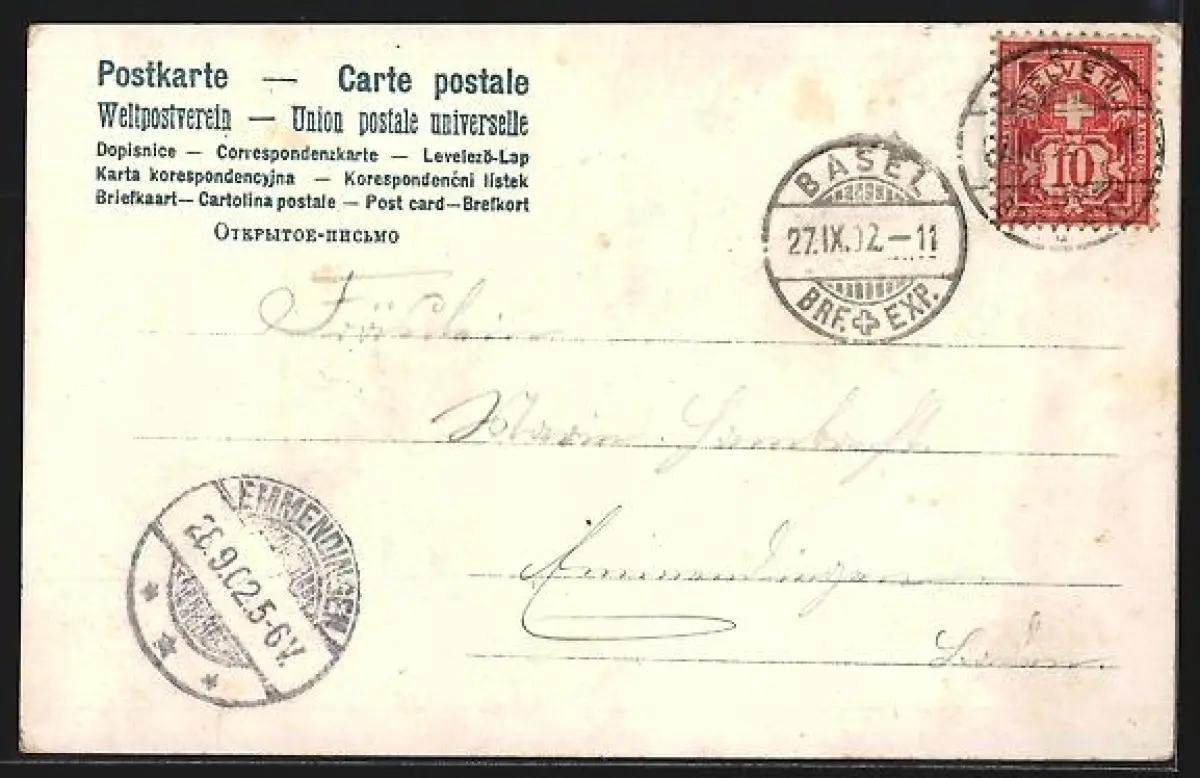 Postkarte — Carte postale
Weltpostverein — Union postale universelle
Dopisnice — Correspondenzkarte — Levelező-Lap
Karta korespondencyjna — Korespondenční lístek
Briefkaart — Cartolina postale — Post card — Brefkort
Открытое-письмо
HELVETIA
10
BASEL
27.IX.02.–11
BRF. EXP.
Fräulein
Marie
Emmendingen
Baden.
EMMENDINGEN
28.9.02.5-6V.